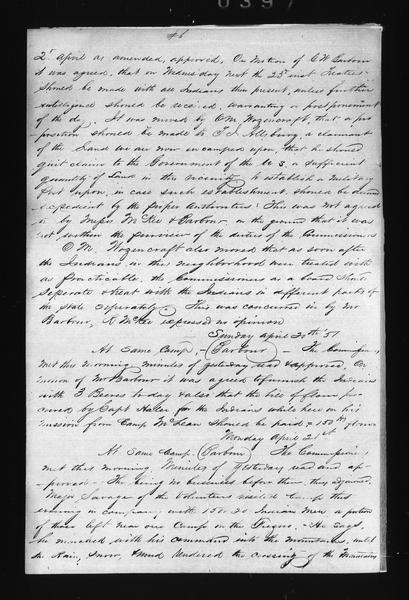 0397
2d April as amended, approved, On Motion of C W Barbour
it was agreed, that on Wednesday next the 23d inst Treaties
should be made with all Indians then present, unless further
intelligence should be received, warranting a postponement
of the day. It was moved by O M. Wozencraft, that a pro-
position should be made to a claimant
of the Land we are now in camped upon, that he should
quit claim to the Government of the U S a sufficient
quantity of Land in this vicinity to establish a Military
Post upon, in case such establishment should be deemed
expedient by the proper Authorities: This was not agreed
to by Messrs McKee & Barbour on the ground that it was
not within the province of the duties of the Commissioners
O M. Wozencraft also moved that as soon after
the Indians in this neighborhood were treated with
as practicable, the Commissioners as a board should
seperate & treat with the Indians in different parts of
the state seperately. This was concurred in by Mr
Barbour, R McKee expressed no opinion
Sunday April 20th 51
At Same Camp, (Barbour) The Commissrs,
met this morning, minutes of yesterday read & approved. On
motion of Mr Barbour it was agreed to furnish the Indians
with 3 Beeves to day & also that the bill of flour pro-
cured by Capt for the Indians while here on his
mission from Camp McLean should be paid,
Monday April 21st
At Same Camp, (Barbour) The Commissrs,
met this morning, Minutes of Yesterday read and ap-
proved - There being no business before them, they adjourned.
Major Savage of the Volunteers visited Camp this
evening in company with 15 or 20 Indian Men a portion
of those left near our Camp on the Fresno. He says,
he marched with his command into the Mountains, until
the Rain, Snow, & Mud rendered the crossing of the Mountains